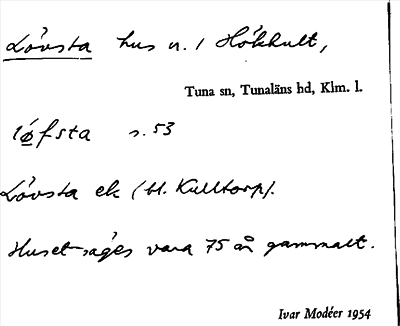 Lövsta hus n. 1 Hökhult,
Tuna sn, Tunaläns hd, Klm. l.
löfsta s. 53
Lövsta ek (bl. Kulltorp).
Huset säges vara 75 år gammalt.
Ivar Modéer 1954